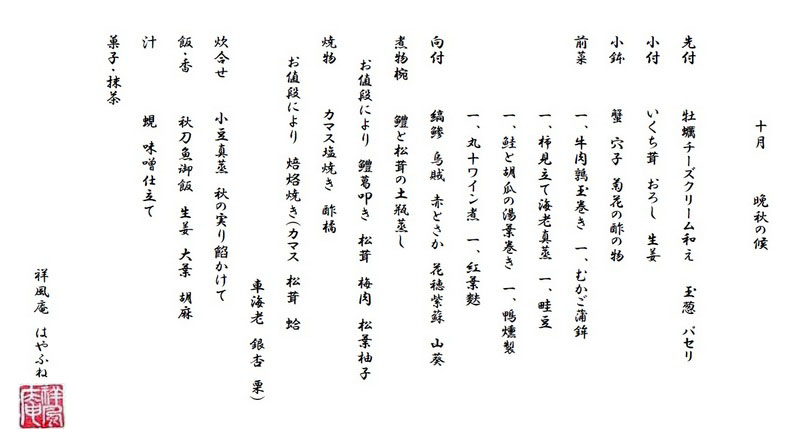 十月　晩秋の候
先付　牡蠣チーズクリーム和え　玉葱　パセリ
小付　いくち茸　おろし　生姜
小鉢　蟹　穴子　菊花の酢の物
前菜　一、牛肉鶉玉巻き　一、むかご蒲鉾
一、柿見立て海老真蒸　一、畦豆
一、鮭と胡瓜の湯葉巻き　一、鴨燻製
一、丸十ワイン煮　一、紅葉麩
向付　縞鯵　烏賊　赤とさか　花穂紫蘇　山葵
煮物椀　鱧と松茸の土瓶蒸し
お値段により　鱧葛叩き　松茸　梅肉　松葉柚子
焼物　カマス塩焼き　酢橘
お値段により　焙烙焼き(カマス　松茸　蛤
車海老　銀杏　栗)
炊合せ　小豆真蒸　秋の実り餡かけて
飯・香　秋刀魚御飯　生姜　大葉　胡麻
汁　蜆　味噌仕立て
菓子・抹茶
祥風庵　はやふね